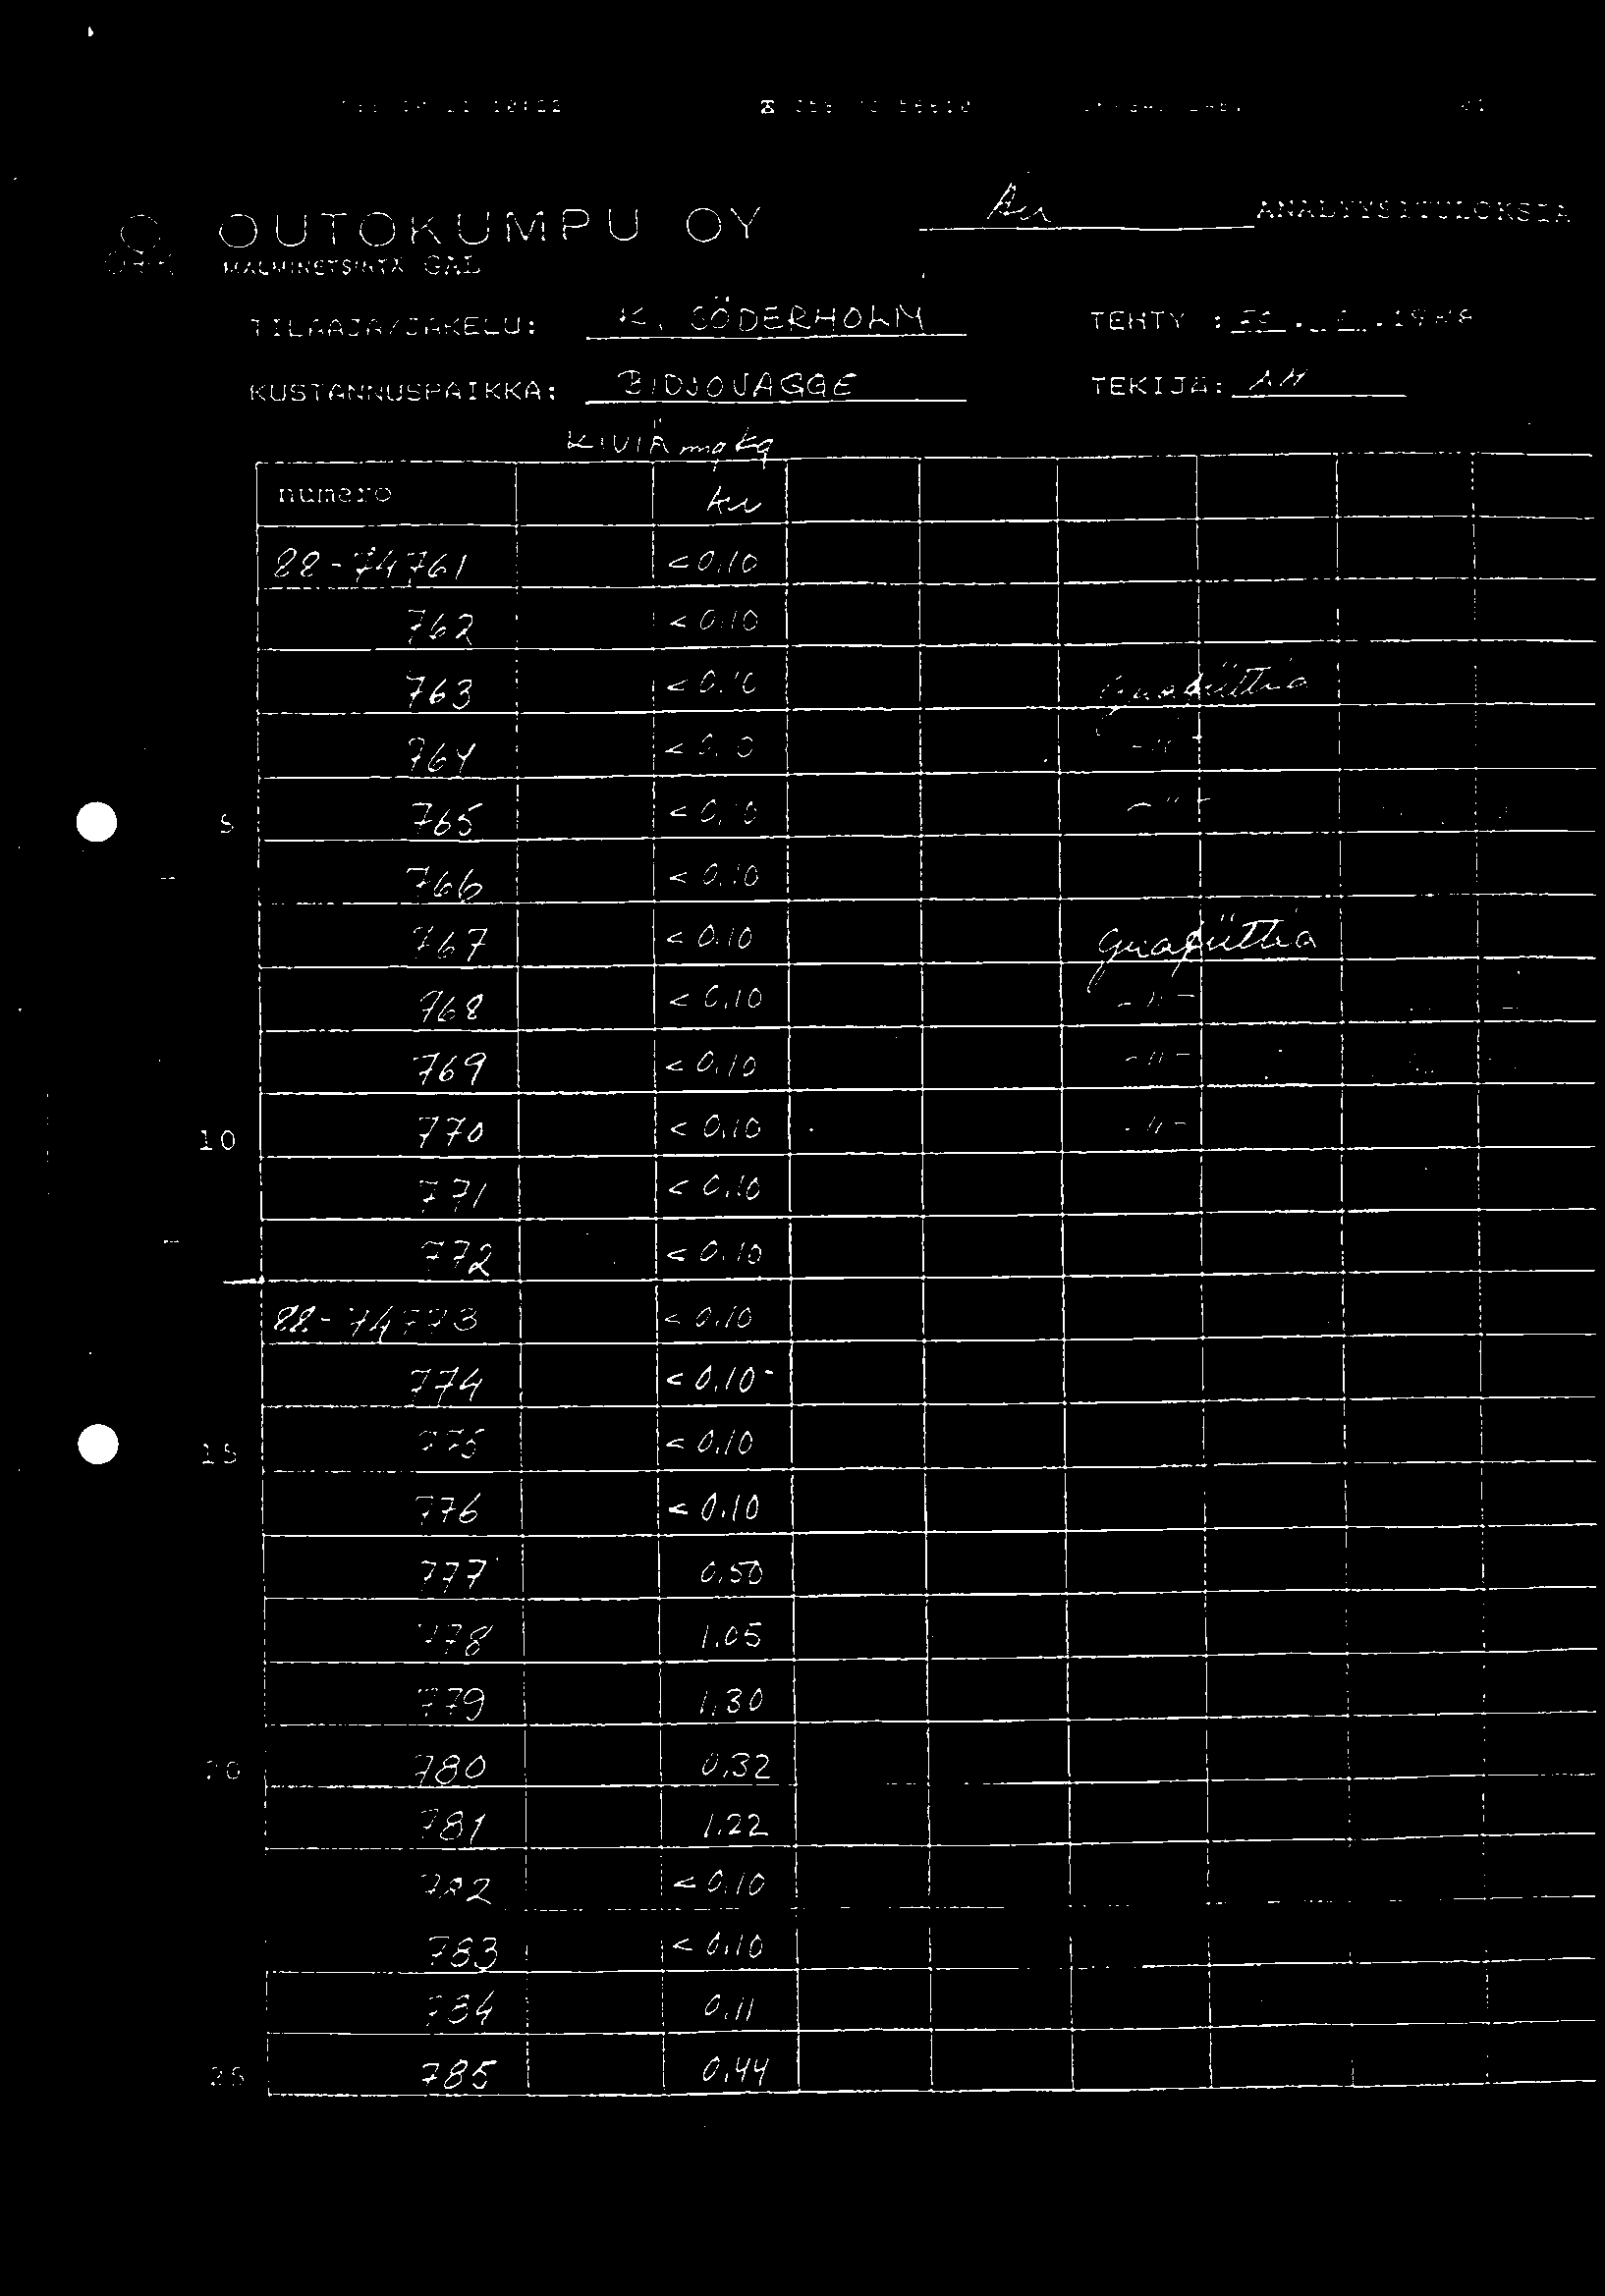 Au ANALYYSITULOKSIA
OUTOKUMPU OY
OKME MALMINETSINTÄ GAL
TILAAJA/JAKELU: K. SÖDERHOLM TEHTY :
KUSTANNUSPAIKKA: BIDJOVAGGE TEKIJÄ: AH
KIVIÄ mg/kg
numero Au
88-74761 <0.10
762 <0.10
763 <0.10 Grafiittia
764 <0.10 -"-
5 765 <0.10 -"-
766 <0.10
767 <0.10 Grafiittia
768 <0.10 -"-
769 <0.10 -"-
10 770 <0.10 -"-
771 <0.10
772 <0.10
88-74773 <0.10
774 <0.10
15 775 <0.10
776 <0.10
777 0.50
778 1.05
779 1.30
20 780 0.32
781 1.22
782 <0.10
783 <0.10
784 0.11
25 785 0.44